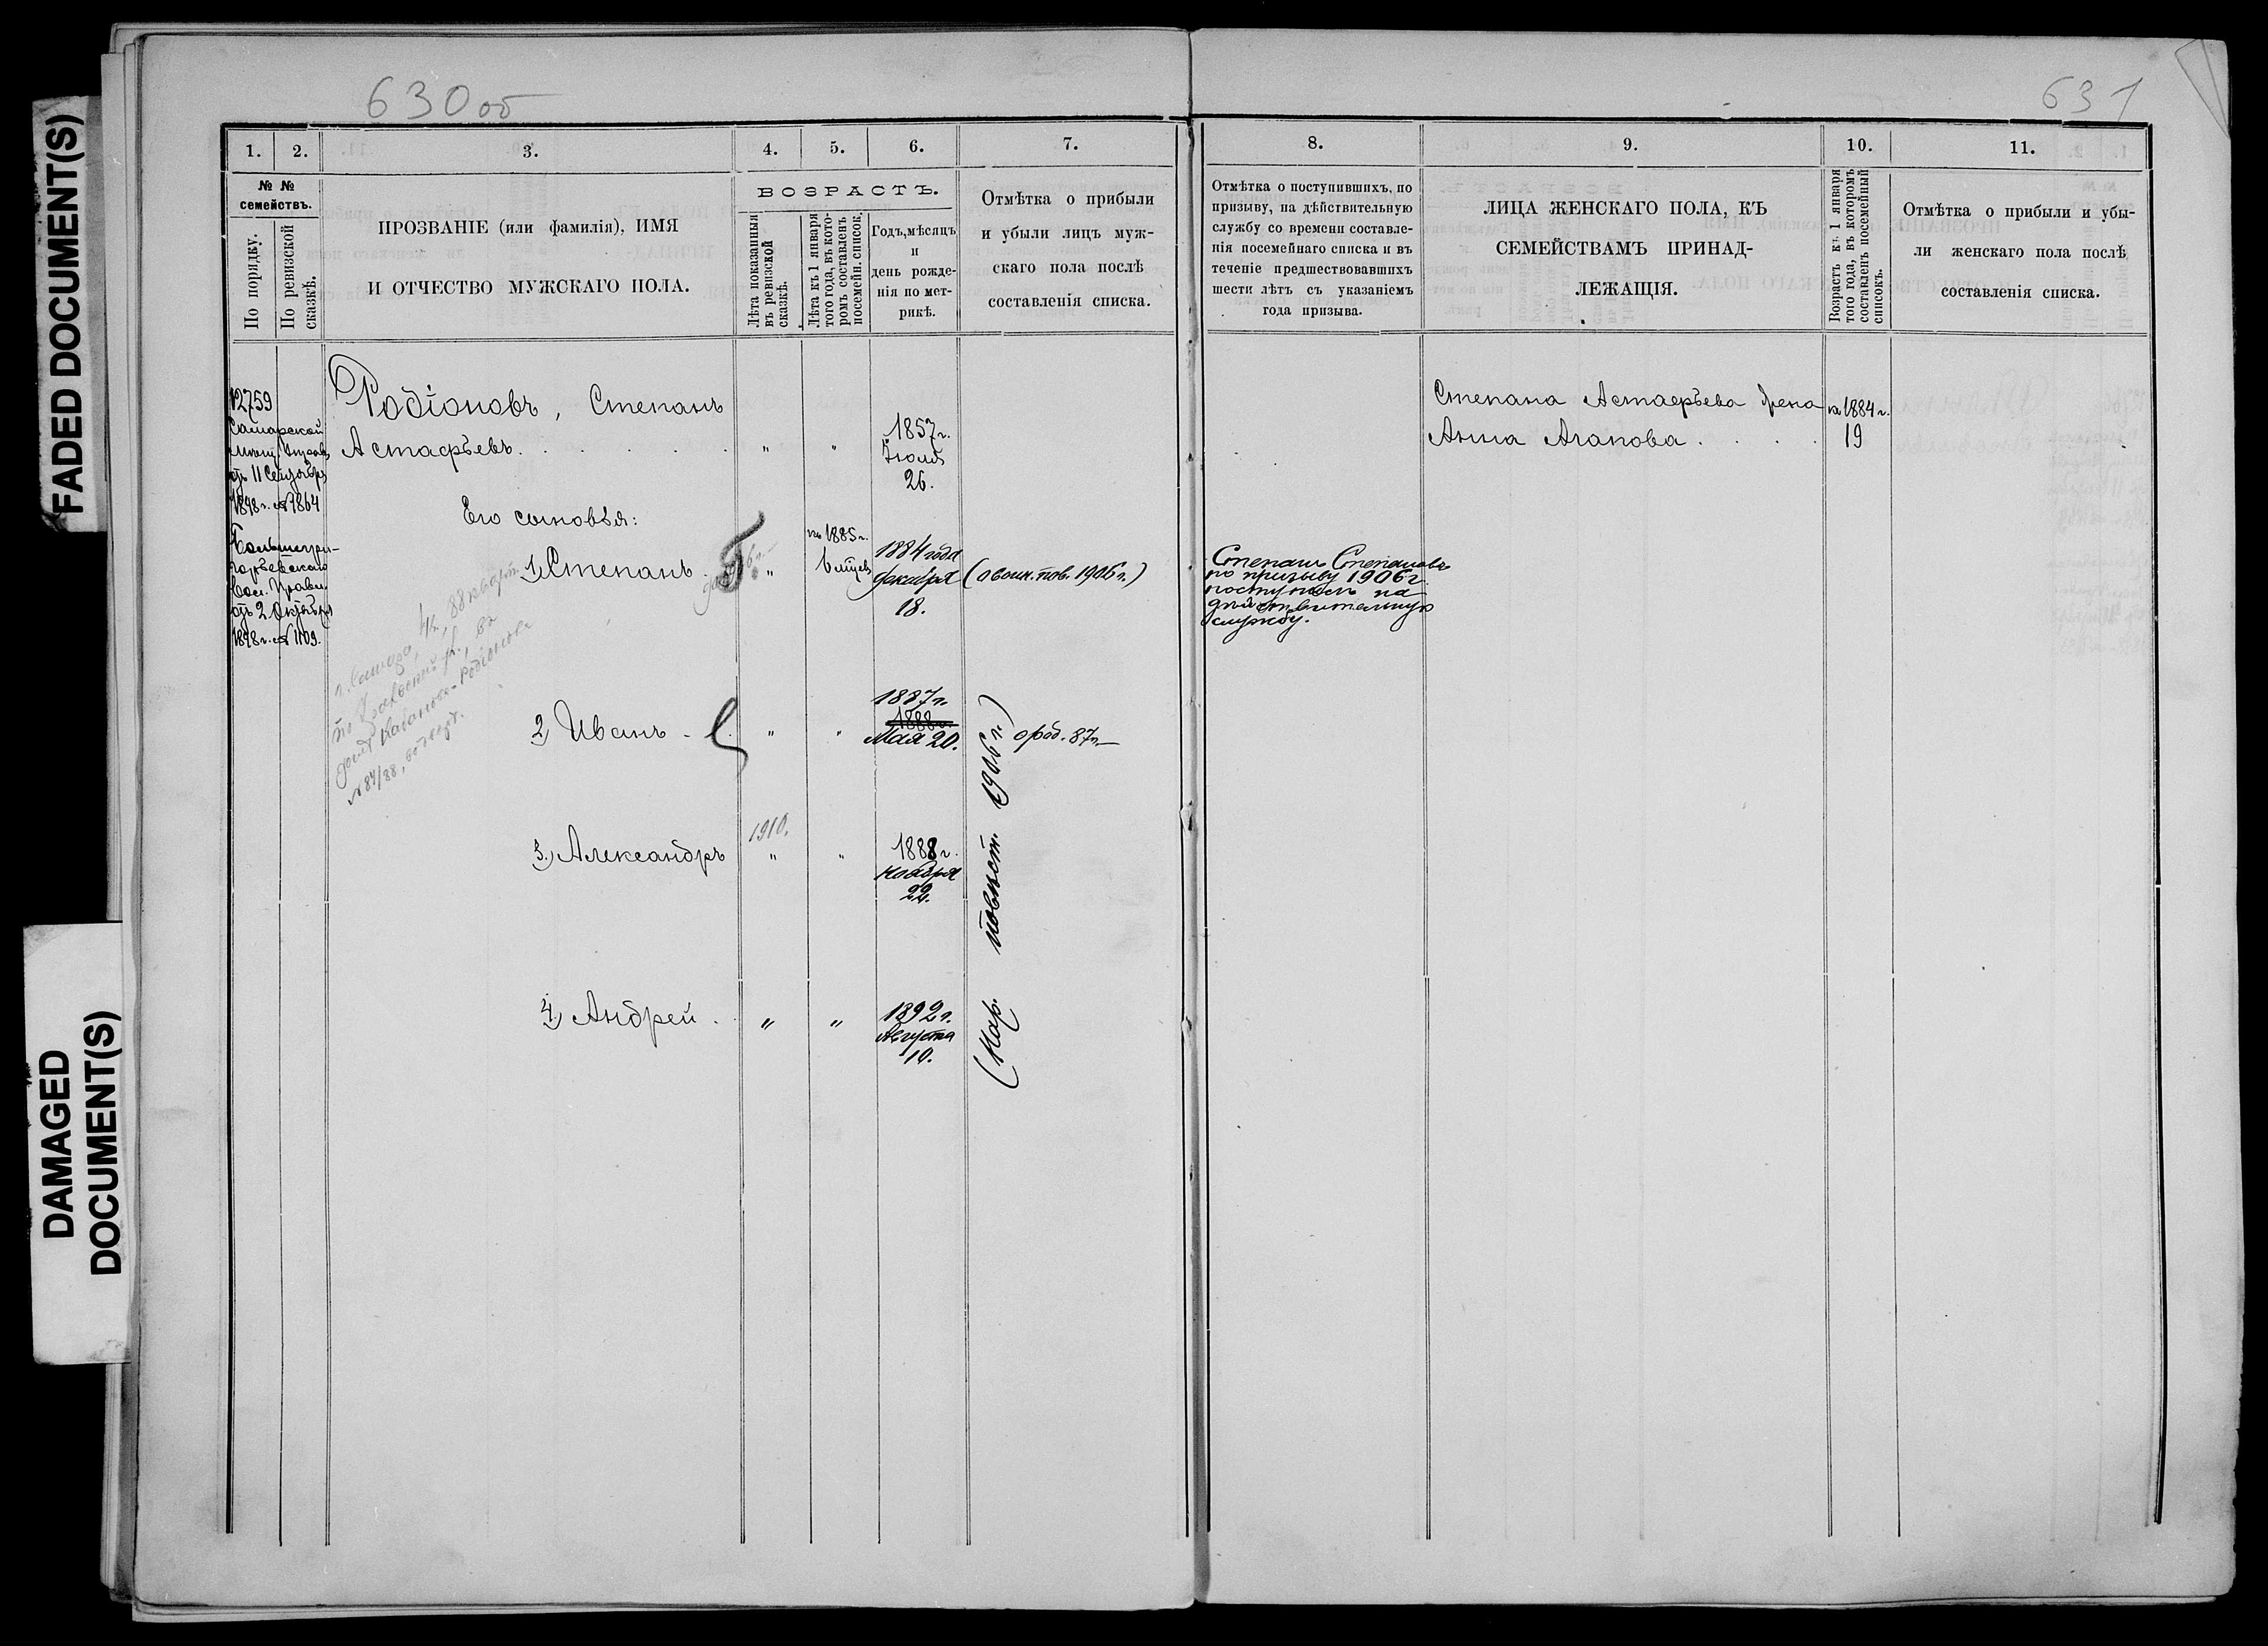 FADED DOCUMENT(S)
DAMAGED
DOCUMENT(S)
630об
631
1. 2. 3. 4. 5. 6. 7.
№ №
семействъ.
По порядку.
По ревизской
сказкѣ.
ПРОЗВАНІЕ (или фамилія), ИМЯ
И ОТЧЕСТВО МУЖСКАГО ПОЛА.
ВОЗРАСТЪ.
Лѣта показанныя
въ ревизской
сказкѣ.
Лѣта къ 1 января
того года, въ кото-
ромъ составленъ
посемейн. список.
Годъ, мѣсяцъ
и
день рожде-
нія по мет-
рикѣ.
Отмѣтка о прибыли
и убыли лицъ муж-
скаго пола послѣ
составленія списка.
12759
Самарской
мѣщ. Управ.
отъ 11 Сентября
1898 г. № 7864
отъ 2 Октября
1898 г. № 1109.
Родіоновъ, Степанъ
Астафьевъ. . . . . . . " "
1857 г.
Іюля
26.
Его сыновья:
1, Степанъ . "
на 1885 г.
1884 года
декабря
18.
(о воин. пов. 1906 г.)
г. Самара, 4ч., 88 кварт.
№ 87/88,
2, Иванъ - " "
1887 г.
1888 г.
Мая 20.
о род. 87 г.
3.) Александръ " "
1910.
1888 г.
ноября
22.
4.) Андрей . " "
1892 г.
Августа
10.
повѣст. 1906 г.)
8. 9. 10. 11.
Отмѣтка о поступившихъ, по
призыву, на дѣйствительную
службу со времени составле-
нія посемейнаго списка и въ
теченіе предшествовавшихъ
шести лѣтъ съ указаніемъ
года призыва.
ЛИЦА ЖЕНСКАГО ПОЛА, КЪ
СЕМЕЙСТВАМЪ ПРИНАД-
ЛЕЖАЩІЯ.
Возрастъ къ 1 января
того года, въ которомъ
составленъ посемейный
списокъ.
Отмѣтка о прибыли и убы-
ли женскаго пола послѣ
составленія списка.
Степана Астафьева жена
на 1884 г.
Анна Агапова . . . .
19
Степанъ Степановъ
по призыву 1906 г.
поступилъ на
дѣйствительную
службу.